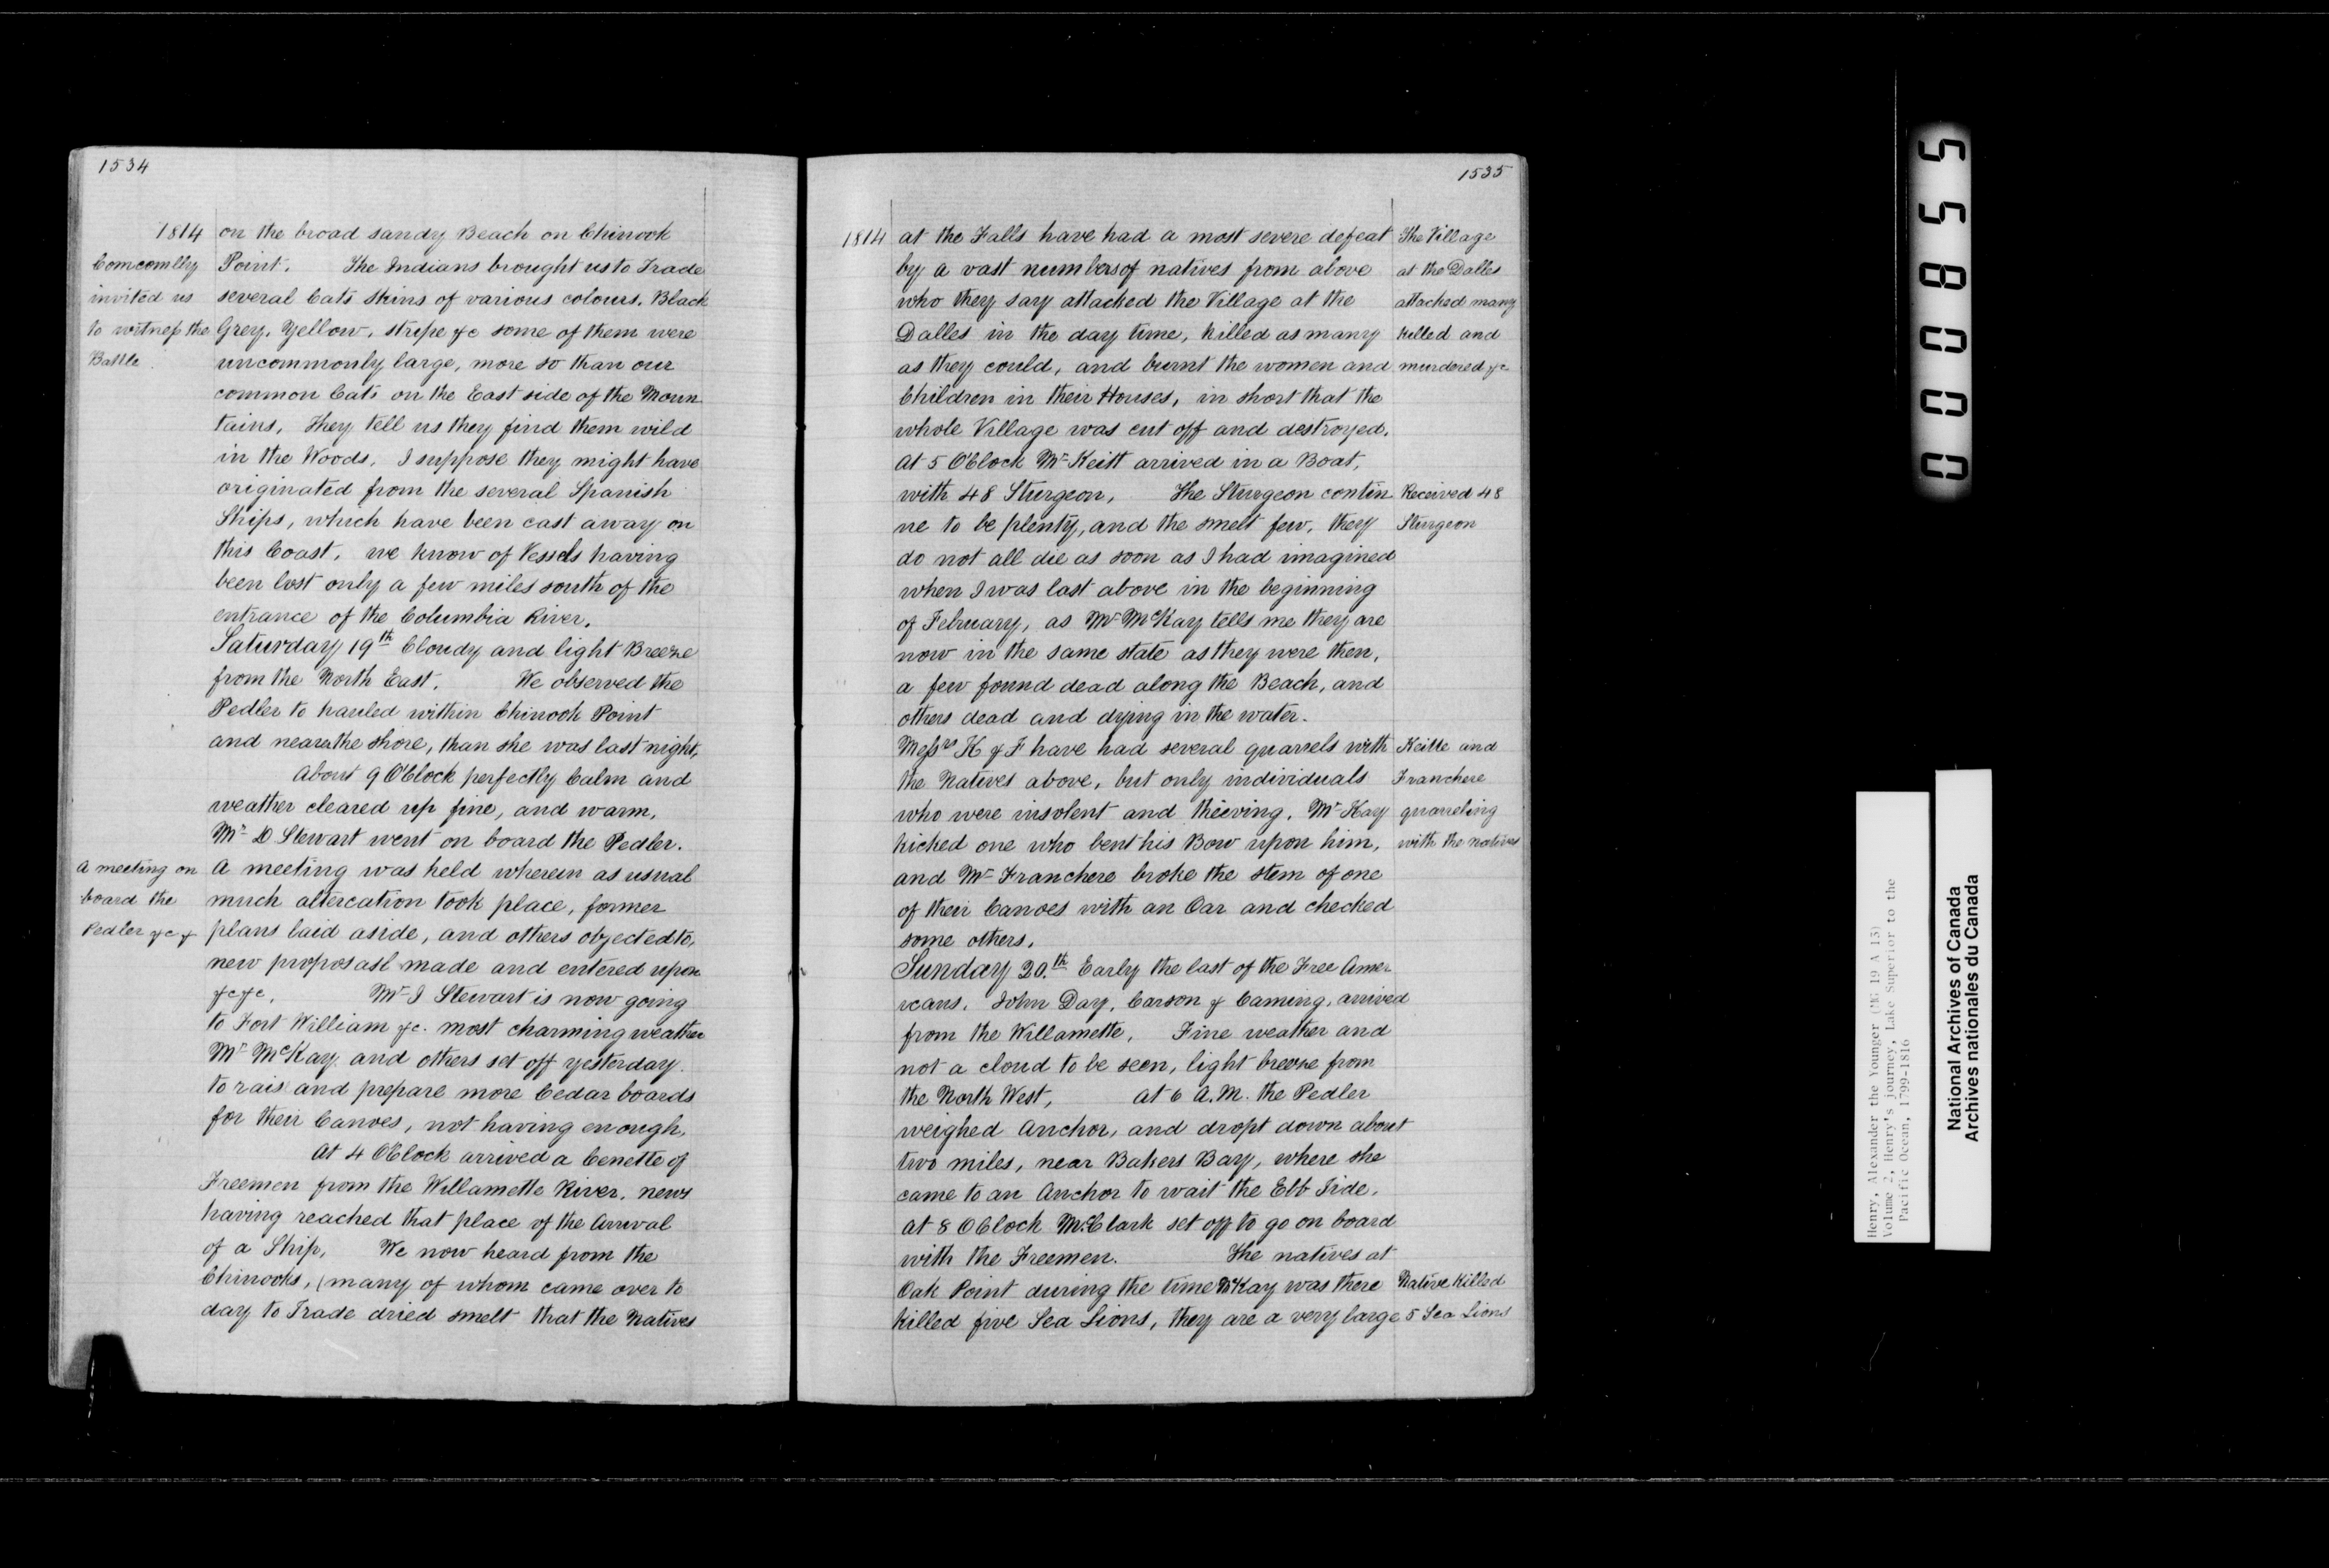 1534
1814
Comcomlly
invited us
to witness the
Battle
on the broad sandy Beach on Chinook
Point. The Indians brought us to Trade
several Cats skins of various colours. Black
Grey. Yellow. stripe &c some of them were
uncommonly large, more so than our
common Cats on the East side of the Moun
tains. They tell us they find them wild
in the Woods. I suppose they might have
originated from the several Spanish
Ships, which have been cast away on
this Coast. we know of Vessels having
been lost only a few miles south of the
entrance of the Columbia River.
Saturday 19th Cloudy and light Breeze
from the North East. We observed the
Pedler to hauled within Chinook Point
and nearer the shore, than she was last night,
About 9 O'Clock perfectly Calm and
weather cleared up fine, and warm.
Mr D Stewart went on board the Pedler.
A meeting on
board the
Pedler &c &
A meeting was held wherein as usual
much altercation took place, former
plans laid aside, and others objected to,
new proposasl made and entered upon
&c &c. Mr J Stewart is now going
to Fort William &c. most charming weather
Mr McKay and others set off yesterday.
to rais and prepare more Cedar boards
for their Canoes, not having enough,
At 4 O'Clock arrived a Cenette of
Freemen from the Willamette River. news
having reached that place of the Arrival
of a Ship, We now heard from the
Chinooks, (many of whom came over to
day to Trade dried smelt that the Natives
1535
1814
at the Falls have had a most severe defeat
by a vast numbers of natives from above
who they say attacked the Village at the
Dalles in the day time, killed as many
as they could, and burnt the women and
Children in their Houses, in short that the
whole Village was cut off and destroyed.
At 5 O'Clock Mr Keitt arrived in a Boat,
with 48 Sturgeon, The Sturgeon contin
ue to be plenty, and the smelt few, they
do not all die as soon as I had imagined
when I was last above in the beginning
of February, as Mr McKay tells me they are
now in the same state as they were then,
a few found dead along the Beach, and
others dead and dying in the water.
Messrs K & F have had several quarrels with
the Natives above, but only individuals
who were insolent and thieving. Mr Kay
kicked one who bent his Bow upon him,
and Mr Franchere broke the stem of one
of their Canoes with an Oar and checked
some others.
Sunday 20.th Early the last of the Free Amer
icans. John Day, Carson & Caming, arrived
from the Willamette. Fine weather and
not a cloud to be seen, light breeze from
the North West, At 6 A.M. the Pedler
weighed Anchor, and dropt down about
two miles, near Bakers Bay, where she
came to an Anchor to wait the Ebb Tide.
At 8 OClock Mr Clark set off to go on board
with the Freemen. The natives at
Oak Point during the time McKay was there
killed five Sea Lions, they are a very large
The Village
at the Dalles
attached many
killed and
murdered &c
Received 48
Sturgeon
Keitte and
Franchere
quarreling
with the natives
Native Killed
5 Sea Lions
000855
Henry, Alexander the Younger (MG 19 A 13)
Volume 2, Henry's journey, Lake Superior to the
Pacific Ocean, 1799-1816
National Archives of Canada
Archives nationales du Canada